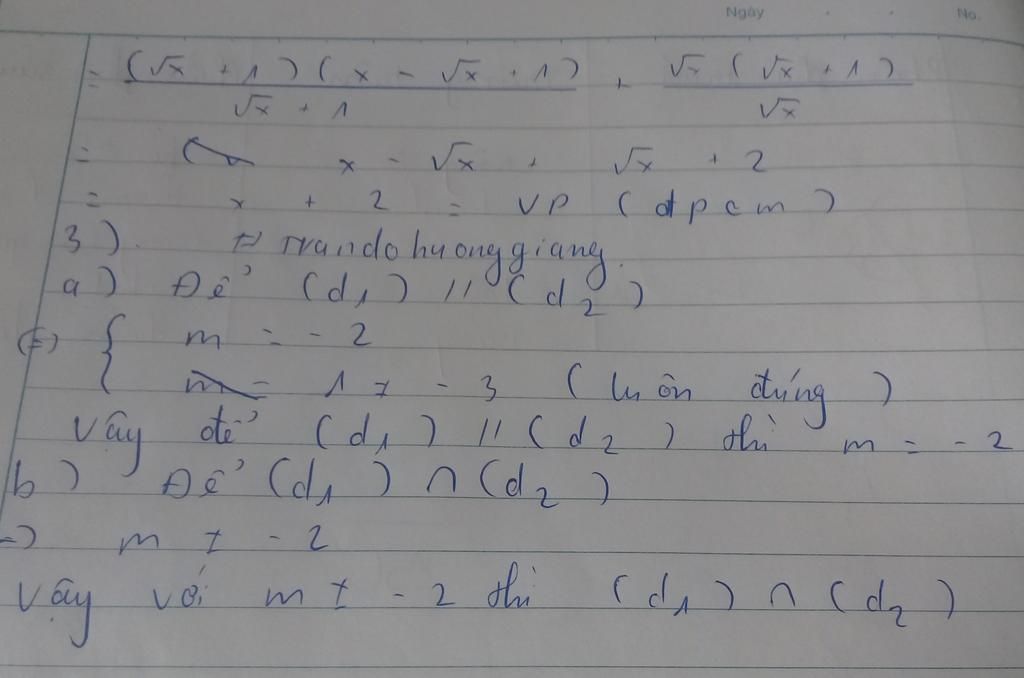 Ngày No.
= (√x + 1)(x - √x + 1) / √x + 1 + √x (√x + 1) / √x
= x - √x + √x + 2
= x + 2 = VP (đpcm)
3) # trandohuonggiang.
a) Để (d1) // (d2)
(=) { m = -2
m = 1 ≠ -3 (luôn đúng)
Vậy để (d1) // (d2) thì m = -2
b) Để (d1) ∩ (d2)
=) m ≠ -2
Vậy với m ≠ -2 thì (d1) ∩ (d2)